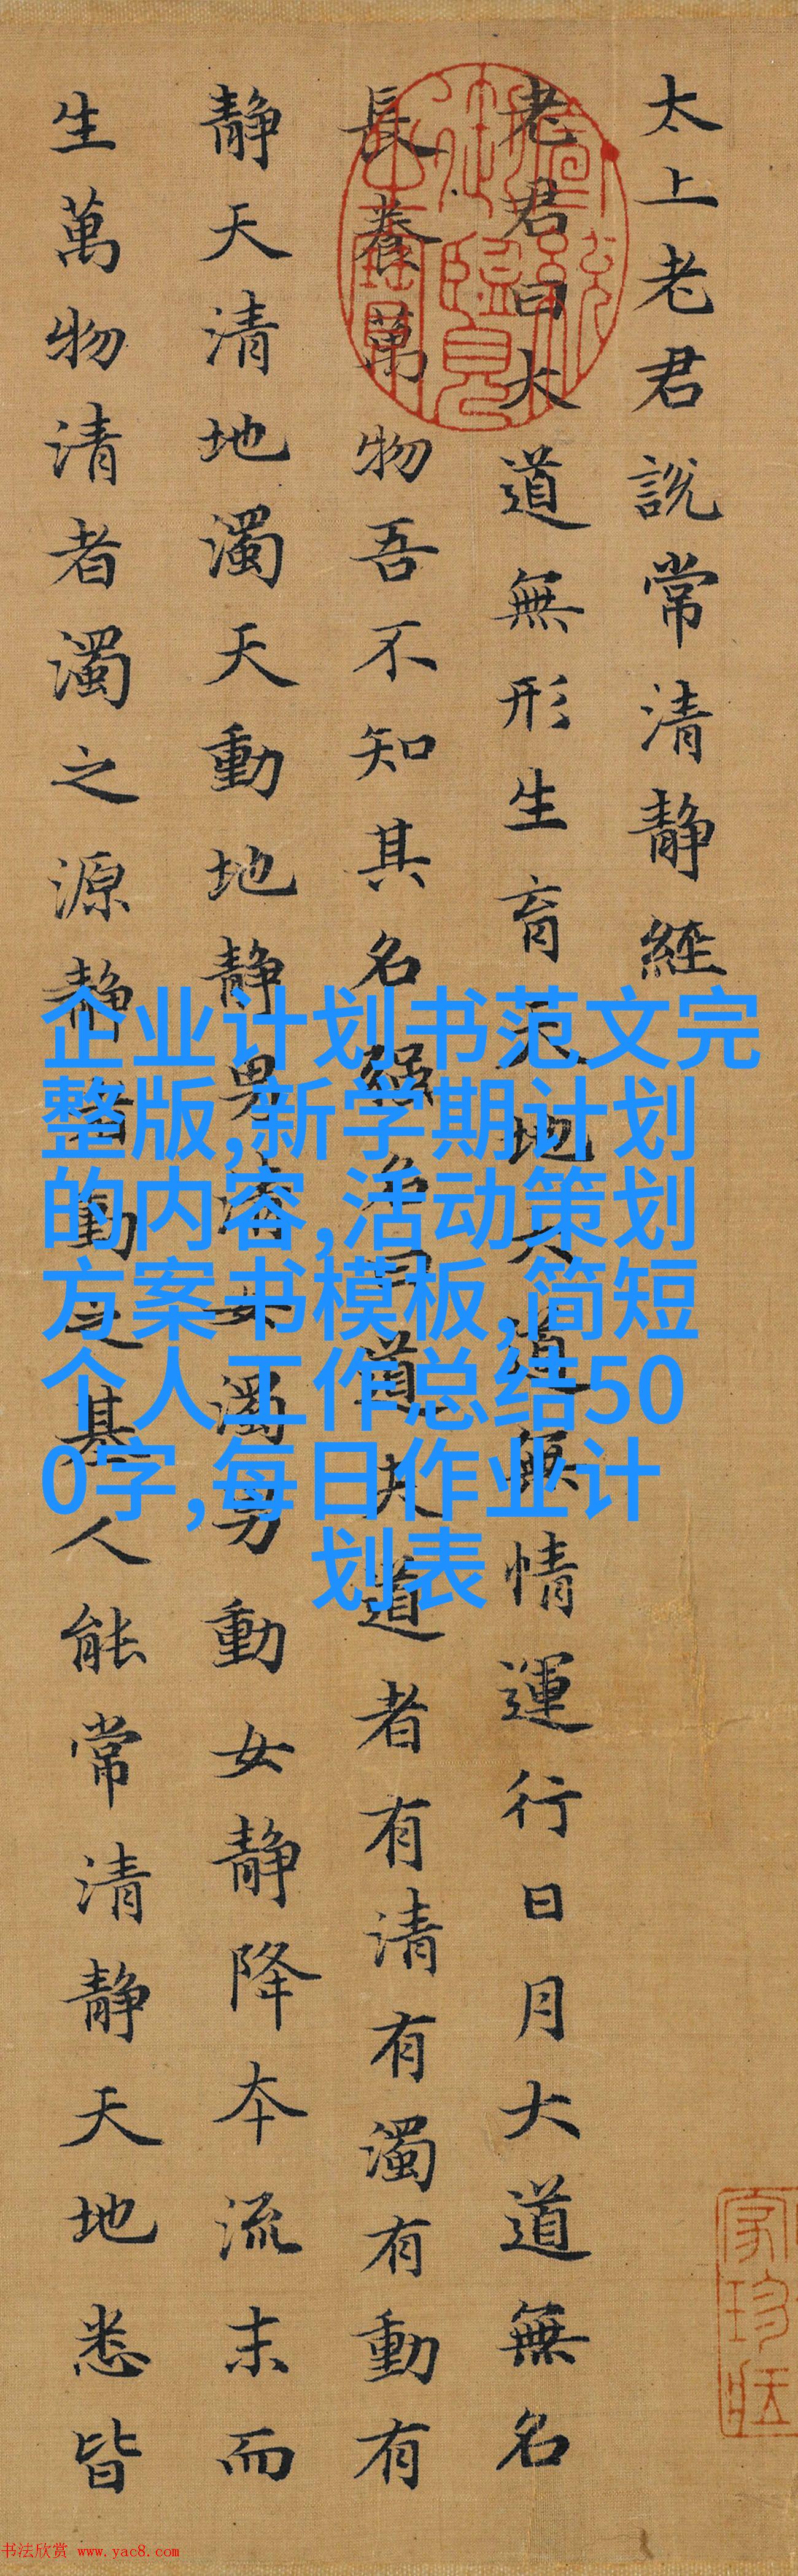 太上老君說常清静經
老君曰大道無形生育天地大道無情運行日月大道無名
長養萬物吾不知其名強名曰道夫道者有清有濁有動有
静天清地濁天動地静男清女濁男動女静降本流末而
生萬物清者濁之源静者動之基人能常清静天地悉皆
企业计划书范文完
整版,新学期计划
的内容,活动策划
方案书模板,简短
个人工作总结50
0字,每日作业计
划表
书法欣赏 www.yac8.com